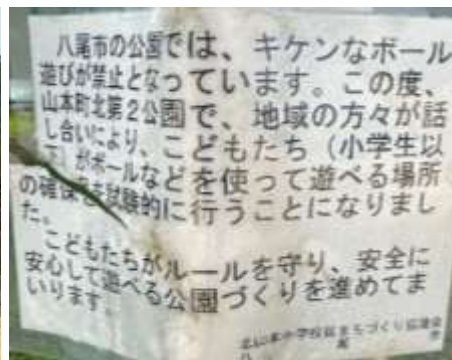 八尾市の公園では、キケンなボール
遊びが禁止となっています。この度、
山本町北第2公園で、地域の方々が話
し合いにより、こどもたち（小学生以
下）がボールなどを使って遊べる場所
の確保を試験的に行うことになりまし
た。
こどもたちがルールを守り、安全に
安心して遊べる公園づくりを進めてま
いります
北山本小学校区まちづくり協議会
八尾市